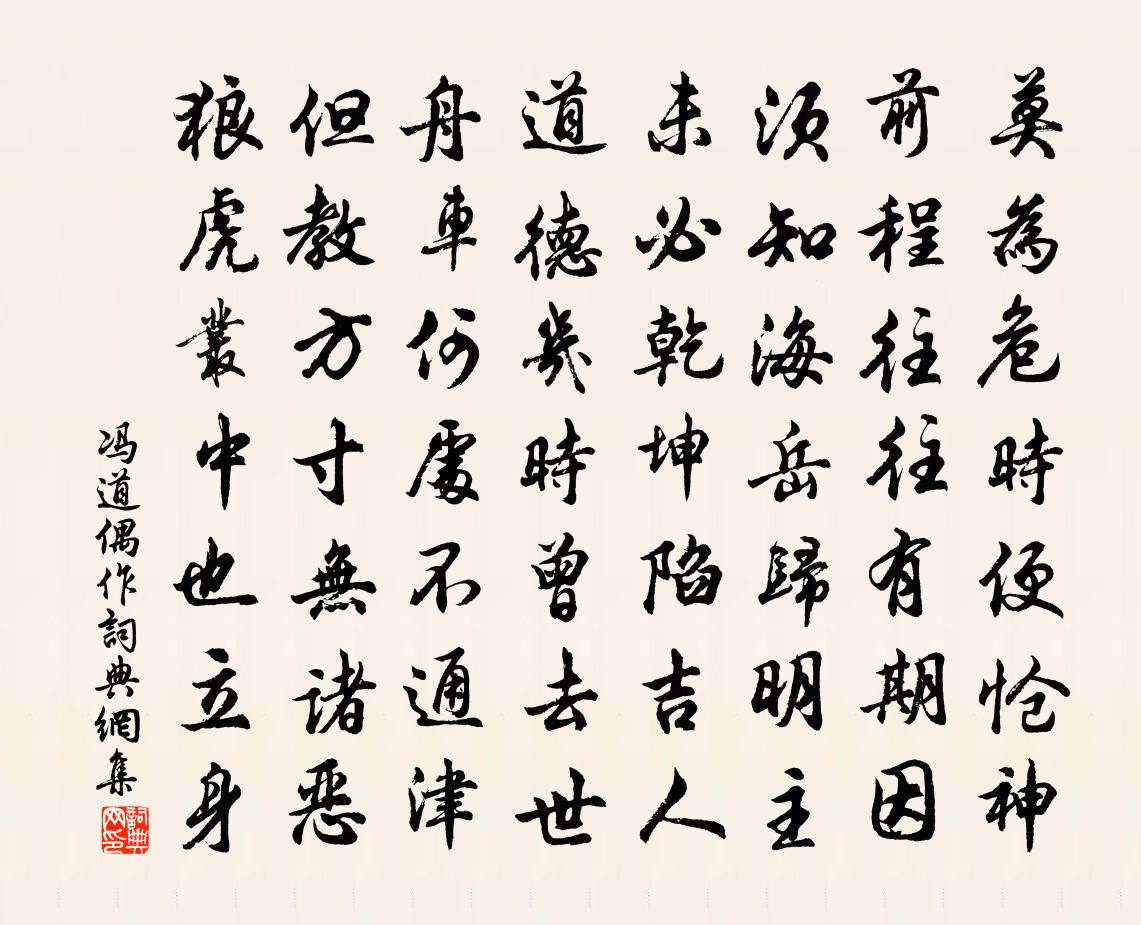 莫為危時便怆神
前程往往有期因
須知海岳歸明主
未必乾坤陷吉人
道德幾時曾去世
舟車何處不通津
但教方寸無諸惡
狼虎叢中也立身
冯道偶作詞典網集
詞典